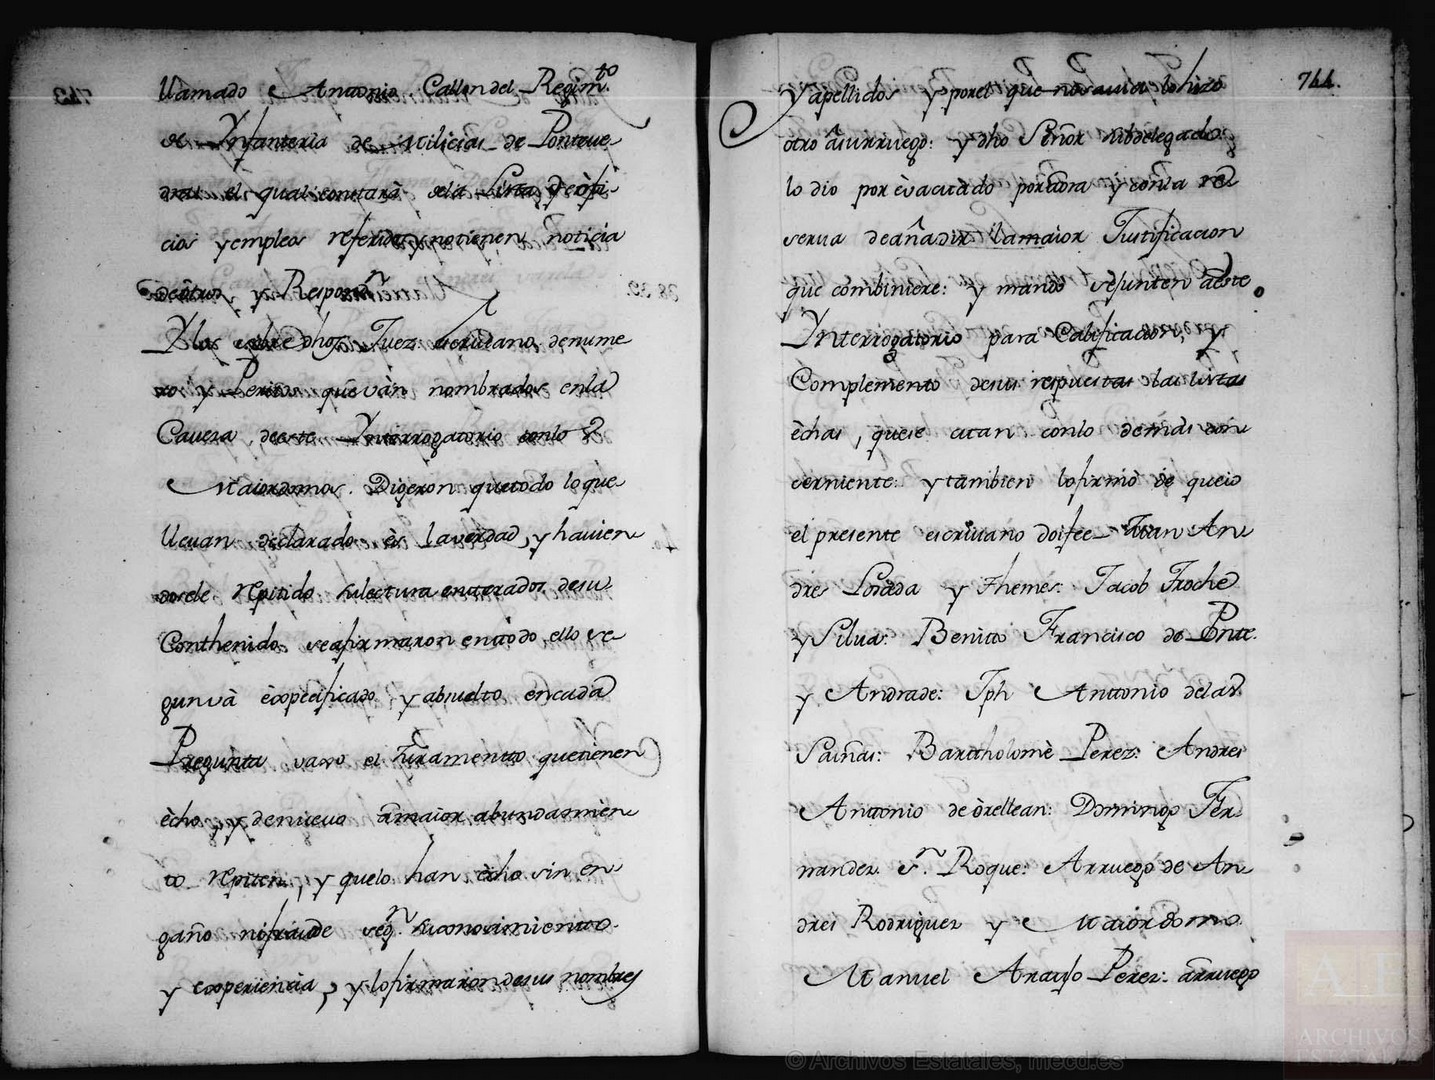 llamado Antonio Callon del Regim.to
de Ynfanteria de Milicias de Ponteve
dra, el qual constarà de la Lista de ofi
cios y empleos referida, y no tienen noticia
de otros y Respon.n
Y los sobre dhos Juez, escribano de nume
ro y Peritos que vàn nombrados en la
Caveza de este Ynterrogatorio con los
Maiordomos. Digeron que todo lo que
llevan declarado ès la verdad, y havien
dosele repitido su lectura enterados de su
Conthenido se afirmaron en todo ello se
gun và expecificado y absuelto en cada
Pregunta vajo el Juramento que tienen
êcho, y de nuevo a maior abundamien
to repiten, y que lo han echo sin en
gaño ni fraude seg.n su conosimiento
y experiencia, y lo firmaron de sus nombres
744.
y apellidos y por el que no savia lo hizo
otro â su rruego: y dho Señor subdelegado
lo dio por èvacuado por aora y con la re
serva de añadir la maior Justificacion
que combiniere: y mandò se junten a este
Ynterrogatorio para Calificacion, y
Complemento de sus respuestas las listas
èchas, que se citan con lo demàs con
cerniente: y tambien lo firmò de que io
el presente escrivano doi fee Juan An
dres Losada y Themes: Jacob Troche
y Silva: Benito Francisco de Ponte
y Andrade: Jph Anttonio de las
Saiñas: Bartholomè Perez: Andres
Anttonio de òrellean: Domingo Fer
nandez S.n Roque: A rruego de An
dres Rodriguez y Maiordomo
Manuel Araujo Perez: a rruego
© Archivos Estatales, mecd.es
ARCHIVOS
ESTATALES